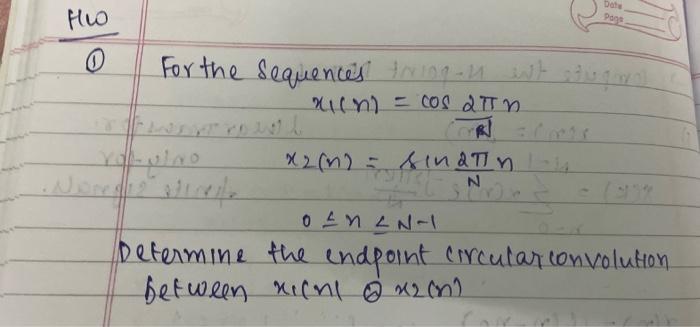 Date
Page
H/W
① For the Sequences
x1(n) = cos 2πn/N
x2(n) = sin 2πn/N
0 ≤ n ≤ N-1
Determine the endpoint circular convolution
between x1(n) Ⓝ x2(n)